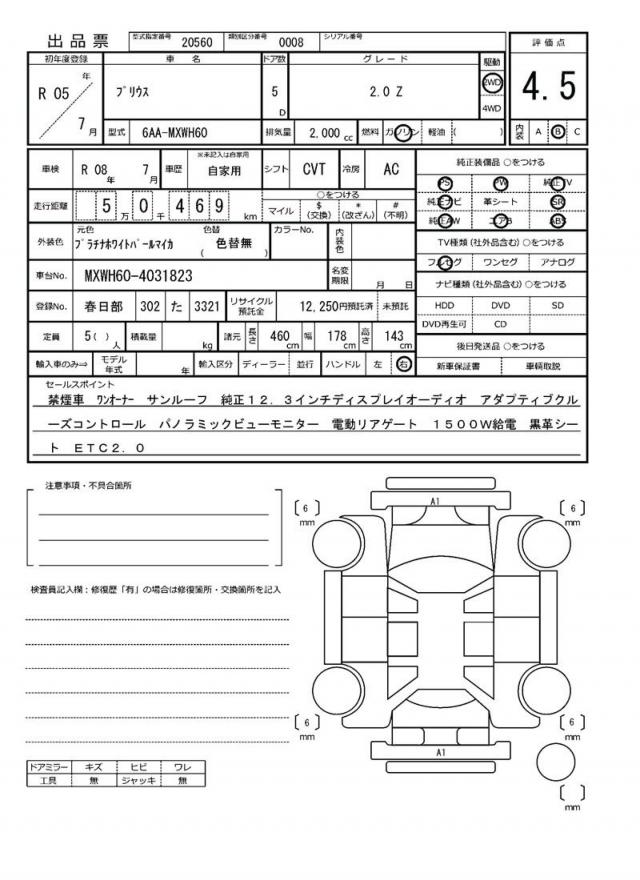 出品票 型式指定番号 20560 類別区分番号 0008 シリアル番号
初年度登録 車名 ドア数 グレード 駆動 評価点
R 05 年 7 月 プリウス 5 D 2.0 Z 2WD 4WD 4.5
型式 6AA-MXWH60 排気量 2,000 cc 燃料 ガソリン 軽油 ( ) 内装 A B C
車検 R 08 年 7 月 車歴 ※未記入は自家用 自家用 シフト CVT 冷房 AC
走行距離 5 万 0 千 4 6 9 km
○をつける
マイル $ (交換) * (改ざん) # (不明)
外装色 元色 プラチナホワイトパールマイカ 色替 ( 色替無 ) カラーNo. 内装色
車台No. MXWH60-4031823 名変期限 月 日
登録No. 春日部 302 た 3321 リサイクル預託金 12,250円預託済 未預託
定員 5( ) 人 積載量 kg 諸元 長さ 460 cm 幅 178 cm 高さ 143 cm
輸入車のみ⇨ モデル年式 年 輸入区分 ディーラー 並行 ハンドル 左 右
純正装備品 ○をつける
PS PW 純正TV
純正ナビ 革シート SR
純正AW エアB ABS
TV種類(社外品含む)○をつける
フルセグ ワンセグ アナログ
ナビ種類(社外品含む)○をつける
HDD DVD SD
DVD再生可 CD
後日発送品 ○をつける
新車保証書 車輌取説
セールスポイント
禁煙車 ワンオーナー サンルーフ 純正12.3インチディスプレイオーディオ アダプティブクル
ーズコントロール パノラミックビューモニター 電動リアゲート 1500W給電 黒革シー
ト ETC2.0
注意事項・不具合箇所
検査員記入欄：修復歴「有」の場合は修復箇所・交換箇所を記入
ドアミラー キズ ヒビ ワレ
工具 無 ジャッキ 無
A1
〔 6 〕 mm
〔 6 〕 mm
〔 6 〕 mm
〔 6 〕 mm
A1
〔 〕 mm